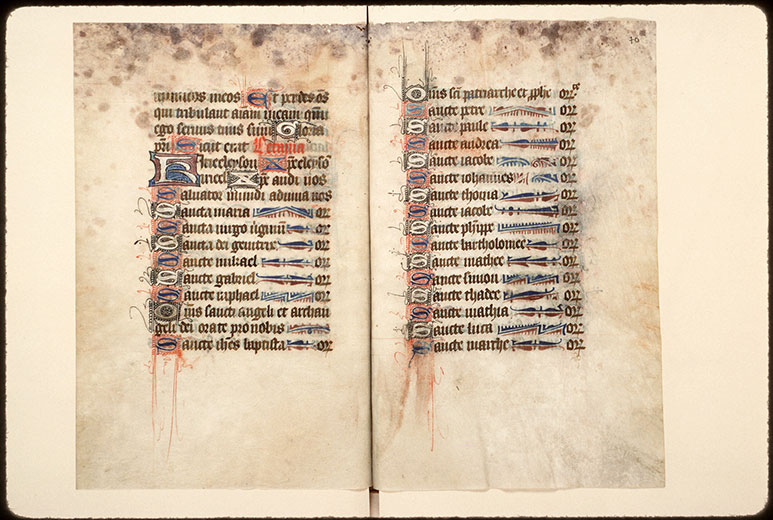 inimicos meos Et perdes oēs
qui tribulant aīam meam qm̄
ego servus tuus sum Gloria
pr̄i Sicut erat Letania
Kirieleyson Xp̄eleyson
Kirieel. Xp̄e audi nos
Salvator mundi adiuva nos
Sancta maria or.
Sancta virgo virginū or.
Sancta dei genitrix or.
Sancte mikael or.
Sancte gabriel or.
Sancte raphael or.
Om̄s sancti angeli et archan
geli dei orate pro nobis
Sancte ioh̄es baptista or.
76
Om̄s sc̄i patriarche et p̄phe or.
Sancte petre or.
Sancte paule or.
Sancte andrea or.
Sancte iacobe or.
Sancte iohannes or.
Sancte thoma or.
Sancte iacobe or.
Sancte philippe or.
Sancte bartholomee or.
Sancte mathee or.
Sancte simon or.
Sancte thadee or.
Sancte mathia or.
Sancte luca or.
Sancte marche or.